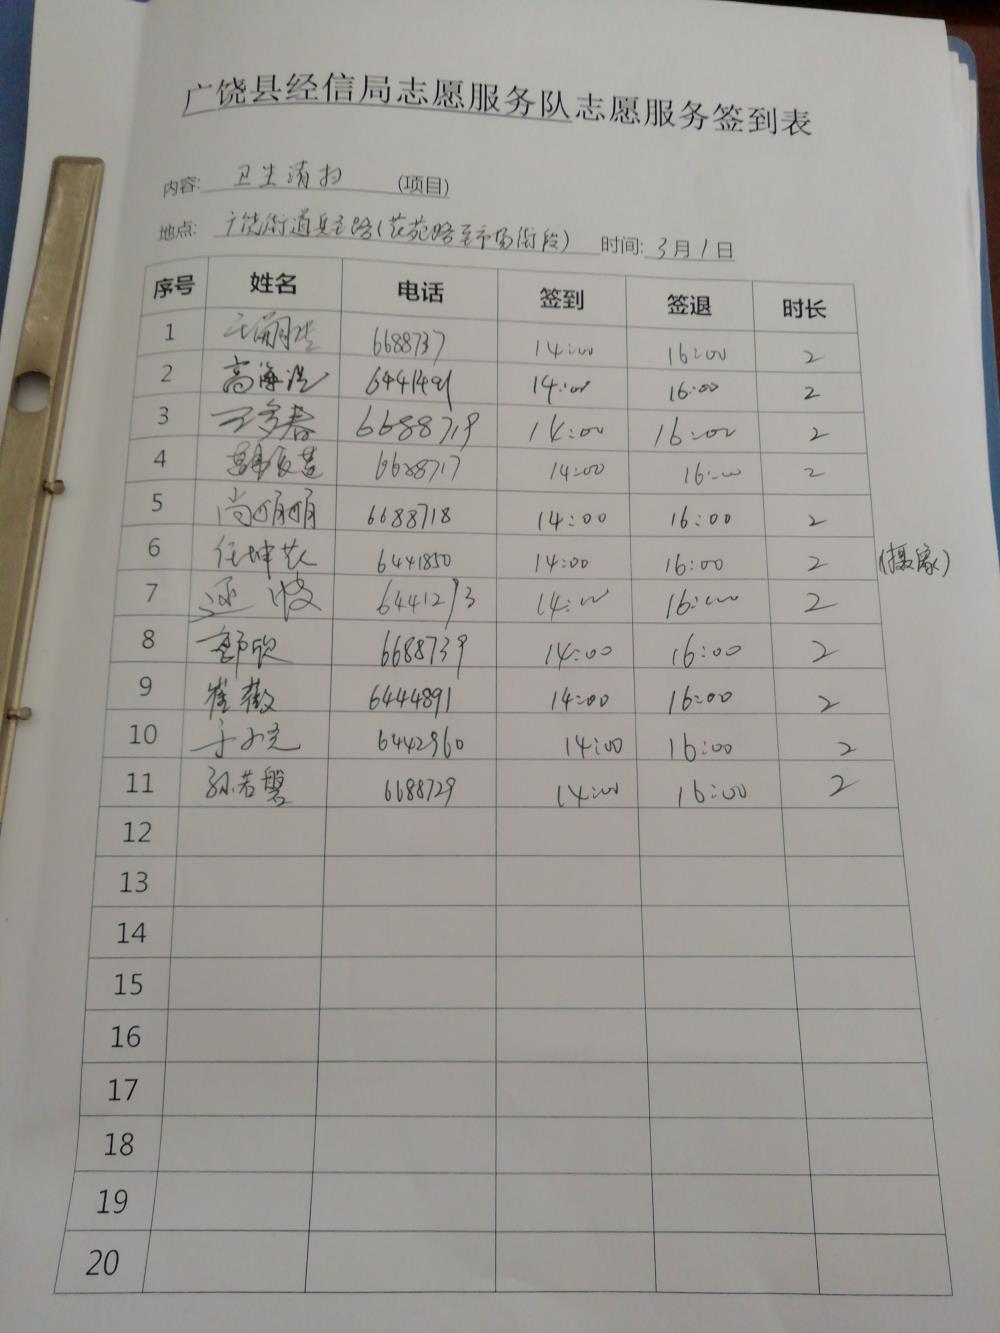 广饶县经信局志愿服务队志愿服务签到表
内容: 卫生清扫 (项目)
地点: 广饶街道兵圣路(花苑路至市场街段) 时间: 3月1日
序号 姓名 电话 签到 签退 时长
1 6688737 14:00 16:00 2
2 高海浩 6441491 14:00 16:00 2
3 王多春 6688719 14:00 16:00 2
4 6688717 14:00 16:00 2
5 尚丽丽 6688718 14:00 16:00 2
6 任坤 6441850 14:00 16:00 2 (摄像)
7 波 6441293 14:00 16:00 2
8 欣 6688739 14:00 16:00 2
9 崔 6444891 14:00 16:00 2
10 于 6442960 14:00 16:00 2
11 孙若磐 6688729 14:00 16:00 2
12
13
14
15
16
17
18
19
20